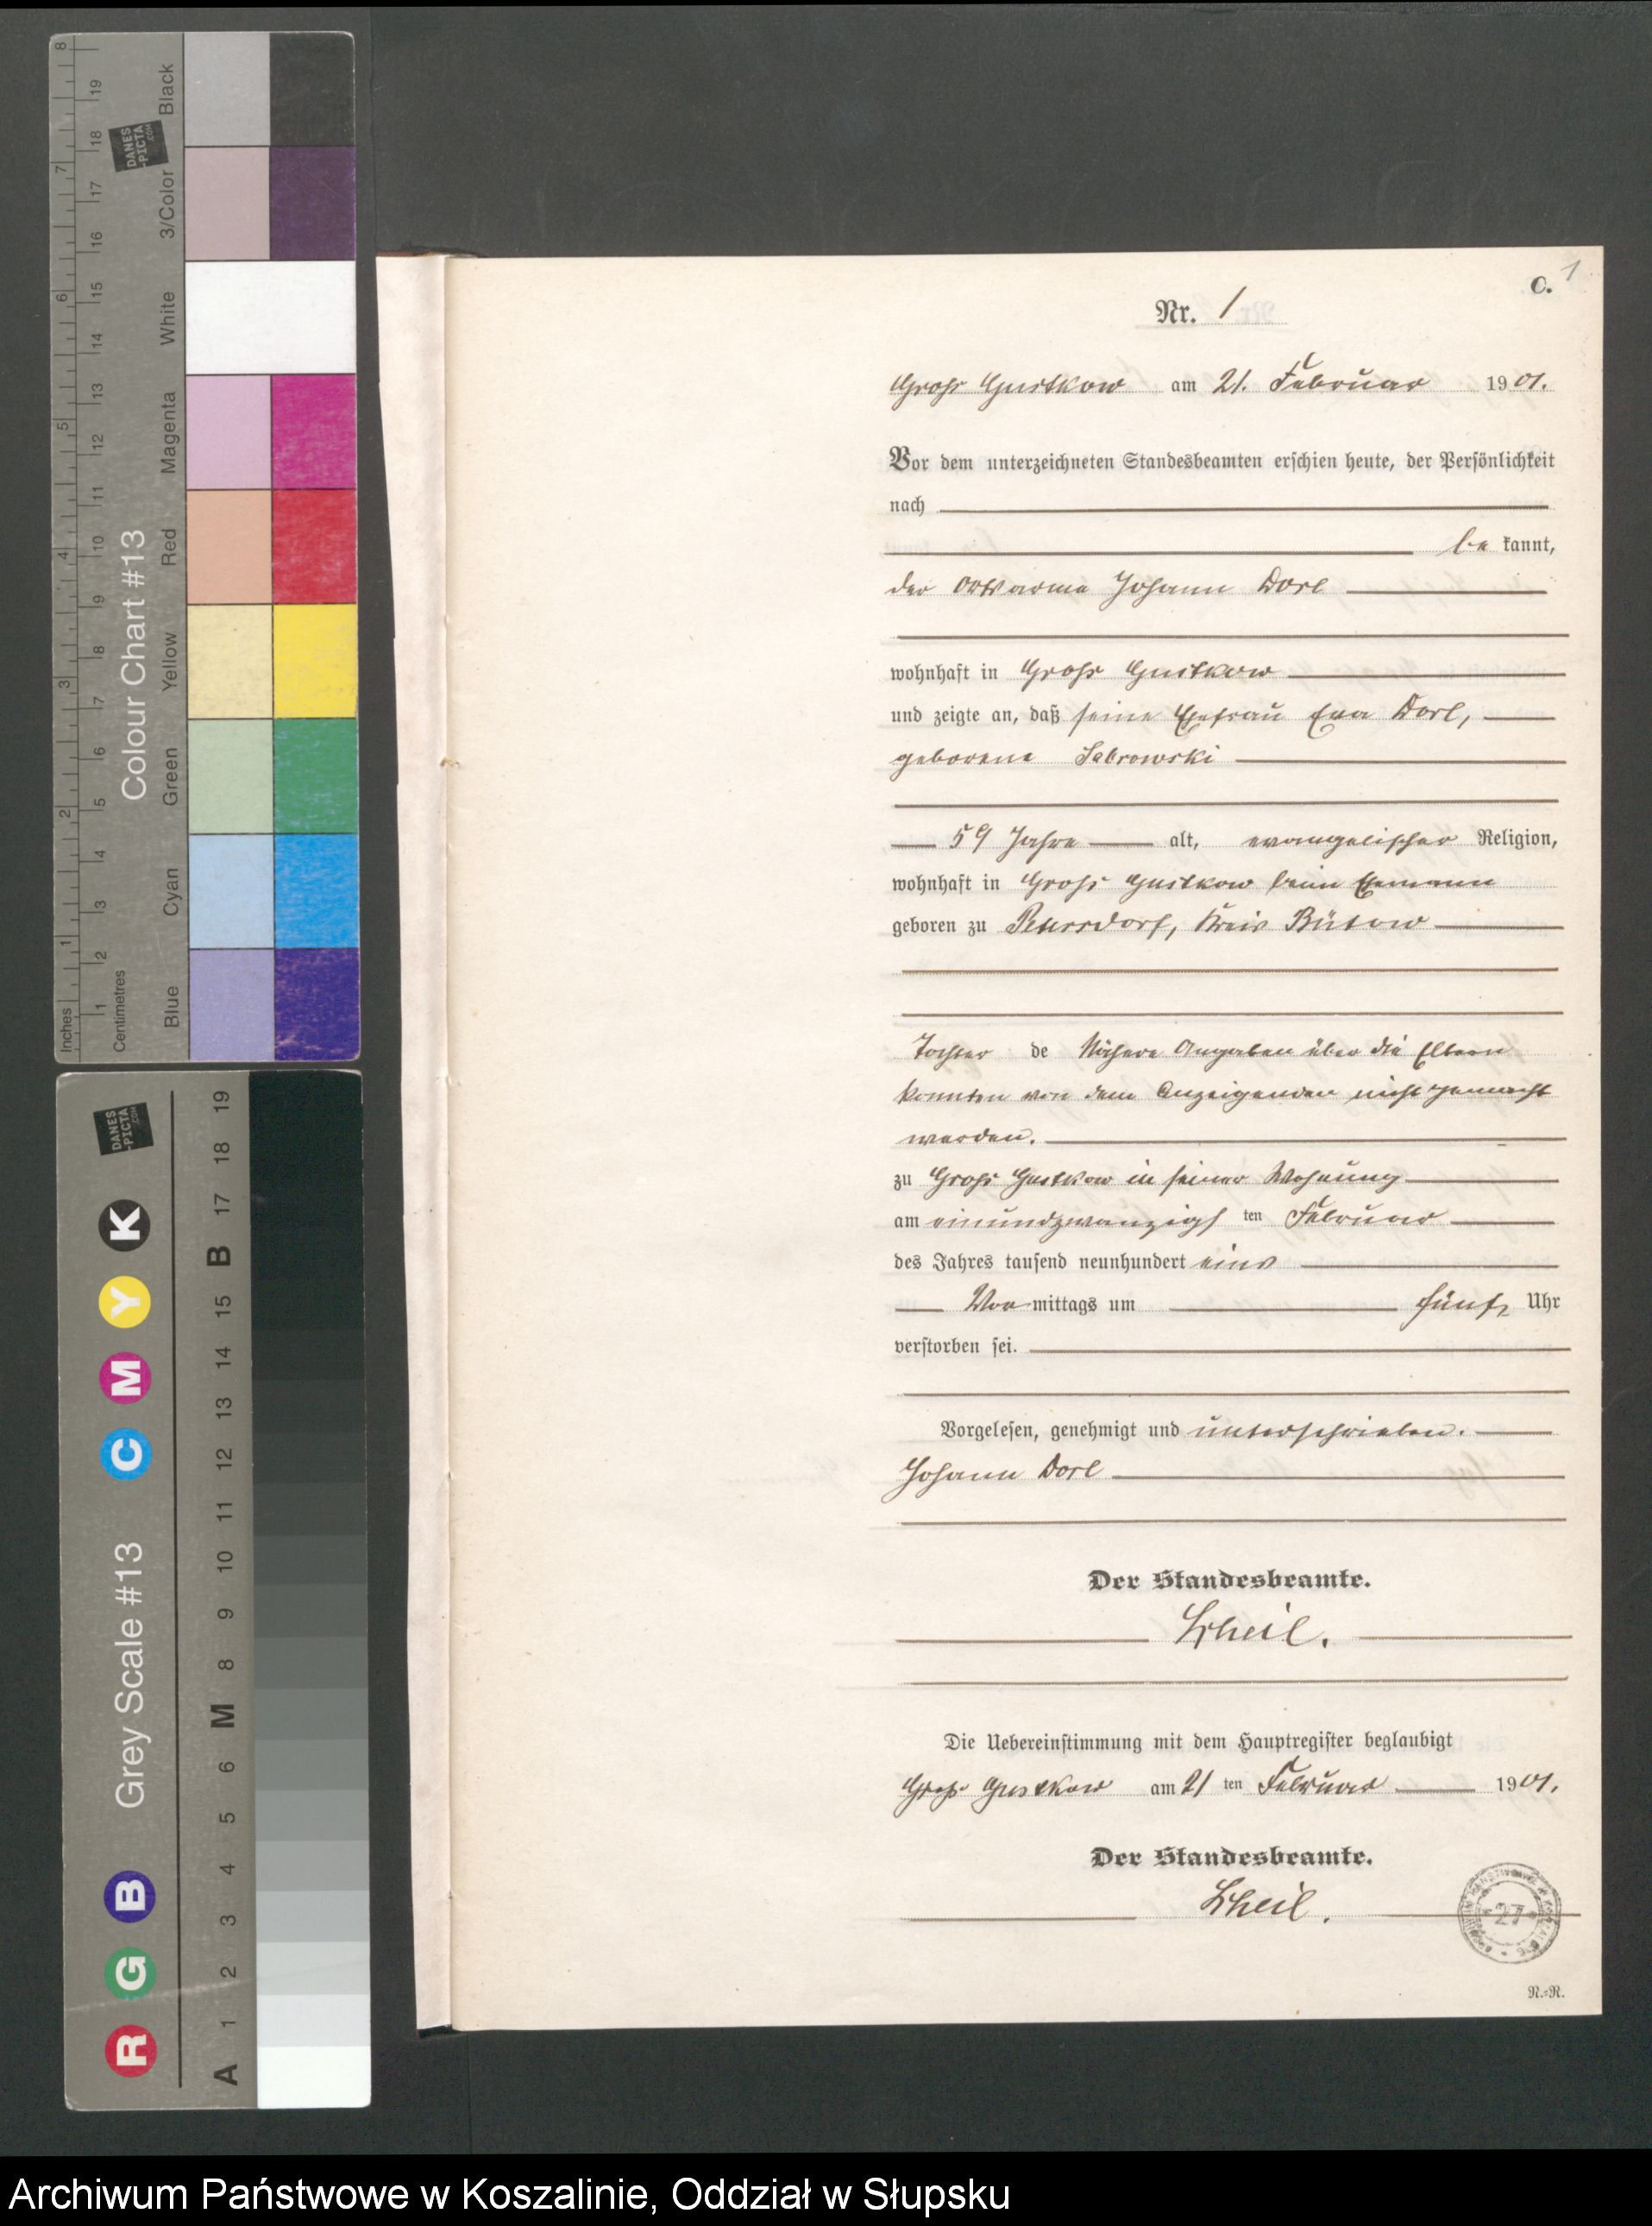 8
7
6
5
4
3
2
1
Inches
19
18
17
16
15
14
13
12
11
10
9
8
7
6
5
4
3
2
1
Centimetres
DANES
-PICTA
.COM
Colour Chart #13
Black
3/Color
White
Magenta
Red
Yellow
Green
Cyan
Blue
DANES
-PICTA
.COM
Grey Scale #13
K
Y
M
C
B
G
R
19
18
17
B
15
14
13
12
11
10
9
8
M
6
5
4
3
2
1
A
C. 1
Nr. 1
Gross Gustkow am 21. Februar 1901.
Vor dem unterzeichneten Standesbeamten erschien heute, der Persönlichkeit
nach
be kannt,
der Ortsarme Johann Dorl
wohnhaft in Gross Gustkow
und zeigte an, daß seine Ehefrau Eva Dorl,
geborene Sabrowski
59 Jahre alt, evangelischer Religion,
wohnhaft in Gross Gustkow beim Ehemann
geboren zu Petersdorf, Kreis Bütow
Tochter de Nähere Angaben über die Eltern
konnten von dem Anzeigenden nicht gemacht
werden.
zu Gross Gustkow in seiner Wohnung
am einundzwanzigs ten Februar
des Jahres tausend neunhundert eins
Vor mittags um fünf Uhr
verstorben sei.
Vorgelesen, genehmigt und unterschrieben.
Johann Dorl
Der Standesbeamte.
Die Uebereinstimmung mit dem Hauptregister beglaubigt
Gross Gustkow am 21 ten Februar 1901.
Der Standesbeamte.
27
R.=R.
Archiwum Państwowe w Koszalinie, Oddział w Słupsku